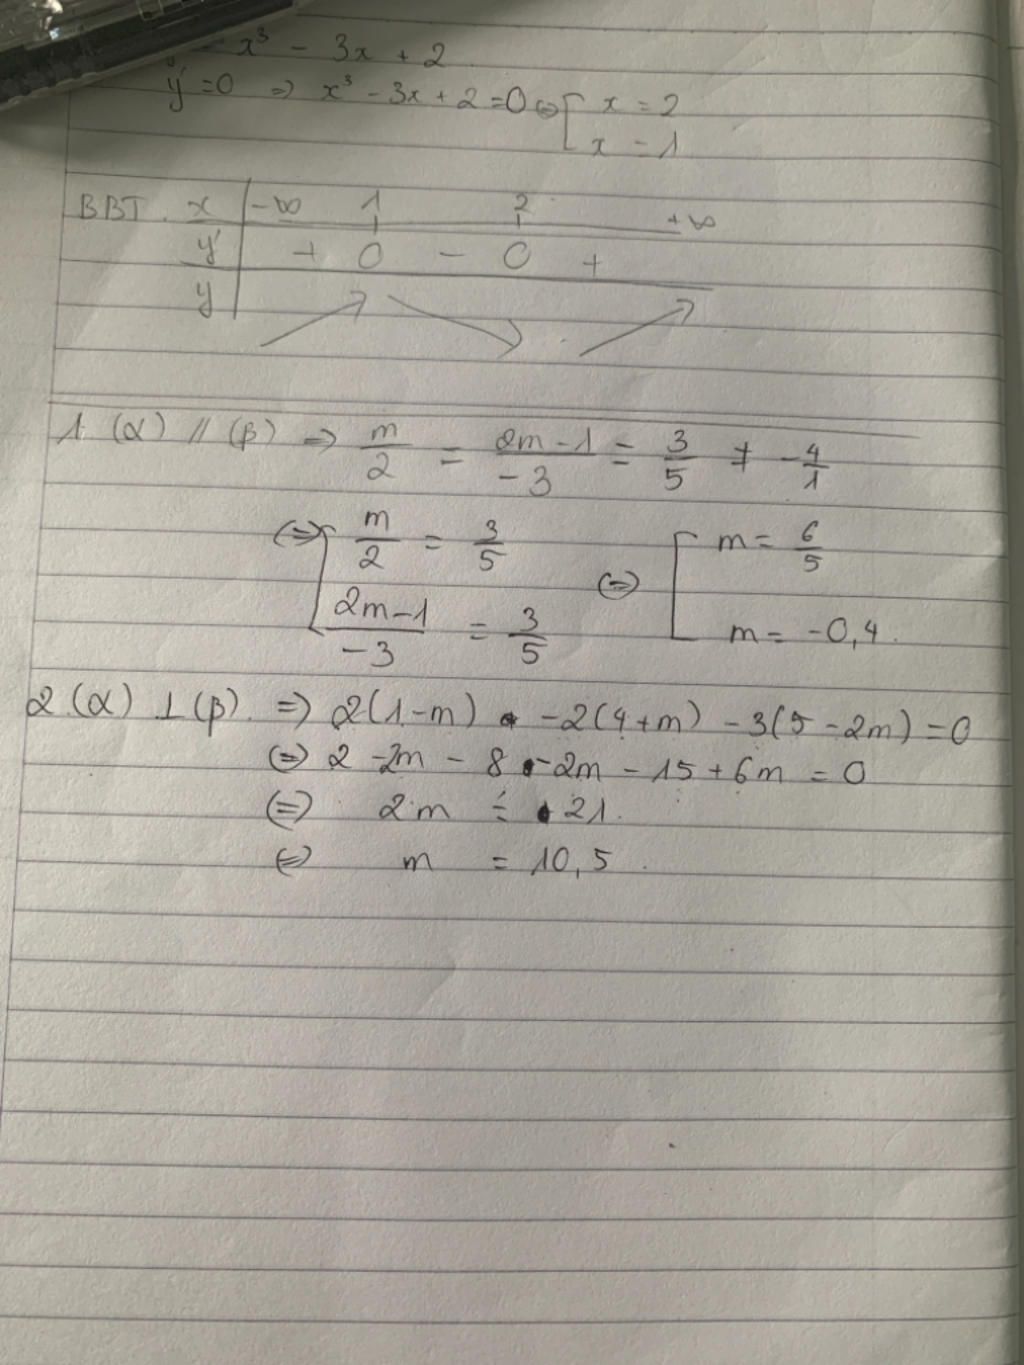 x³ - 3x + 2
y' = 0 => x³ - 3x + 2 = 0 <=> [ x = 2
x = 1
BBT. x | -∞ 1 2 +∞
y' | + 0 - 0 +
y | ↗ ↘ ↗
1. (α) // (β) => m/2 = (2m-1)/-3 = 3/5 ≠ -4/1
<=> [ m/2 = 3/5 <=> [ m = 6/5
(2m-1)/-3 = 3/5 m = -0,4.
2. (α) ⊥ (β). => 2(1-m) -2(4+m) -3(5-2m) = 0
<=> 2 -2m - 8 -2m - 15 + 6m = 0
<=> 2m = 21.
<=> m = 10,5.